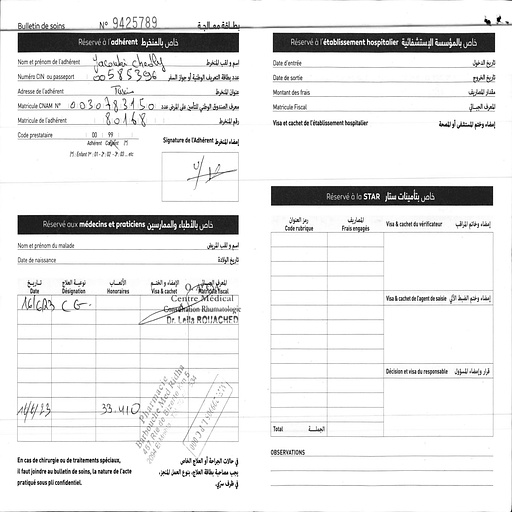 Bulletin de soins N° 9425789 بطاقة معالجة
Réservé à l'adhérent خاص بالمنخرط
Nom et prénom de l'adhérent Yacoubi Chedly اسم و لقب المنخرط
Numéro CIN ou passeport 00585396 عدد بطاقة التعريف الوطنية أو جواز السفر
Adresse de l'adhérent Tunis عنوان المنخرط
Matricule CNAM N° 0030783150 معرف الصندوق الوطني للتأمين على المرض عدد
Matricule de l'adhérent 80168 رقم المنخرط
Code prestataire 00 99
Adhérent Conjoint 75
75 : Enfant 1er : 01 - 2 : 02 - 3 : 03 ... etc
Signature de l'Adhérent إمضاء المنخرط
Réservé aux médecins et praticiens خاص بالأطباء والممارسين
Nom et prénom du malade اسم و لقب المريض
Date de naissance تاريخ الولادة
تاريخ نوعية العلاج الأتعاب الإمضاء و الختم المعرف الجبائي
Date Désignation Honoraires Visa & cachet Matricule fiscal
CG
Centre Médical
Consultation Rhumatologie
Dr. Leila ROUACHED
33.410
Pharmacie
En cas de chirurgie ou de traitements spéciaux,
il faut joindre au bulletin de soin, la nature de l'acte
pratiqué sous pli confidentiel.
في حالات الجراحة أو العلاج الخاص
يجب مصاحبة بطاقة العلاج، بنوع العمل المنجز،
في ظرف سري.
Réservé à l'établissement hospitalier خاص بالمؤسسة الإستشفائية
Date d'entrée تاريخ الدخول
Date de sortie تاريخ الخروج
Montant des frais مقدار المصاريف
Matricule Fiscal المعرف الجبائي
Visa et cachet de l'établissement hospitalier إمضاء وختم المستشفى أو المصحة
Réservé à la STAR خاص بتأمينات ستار
رمز العنوان المصاريف
Code rubrique Frais engagés
Visa & cachet du vérificateur إمضاء وخاتم المراقب
Visa & cachet de l'agent de saisie
Décision et visa du responsable قرار وإمضاء المسؤول
Total الجملة
OBSERVATIONS